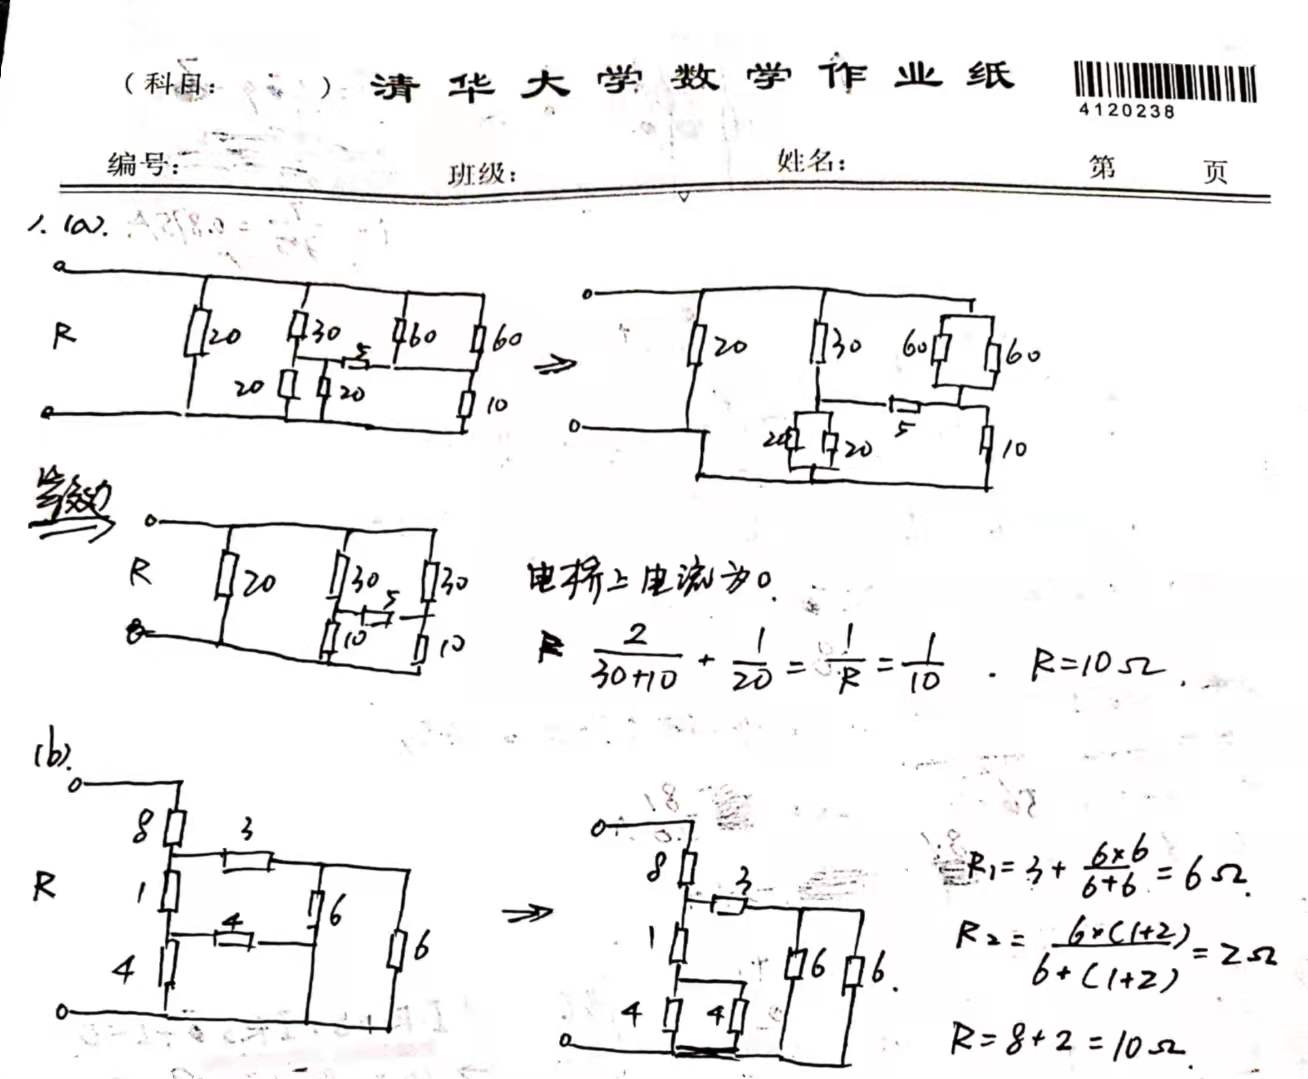 (科目:          ) 清华大学数学作业纸
4120238
编号: 班级: 姓名: 第 页
1. (a).
R 20 30 5 60 60
20 20 10
20 30 60 60
20 20 5 10
等效
R 20 30 5 30
10 10
电桥上电流为0.
2/(30+10) + 1/20 = 1/R = 1/10 . R=10Ω.
(b).
8 3
R 1 4 6 6
4
8 3
1 6 6.
4 4
R₁=3+(6×6)/(6+6)=6Ω.
R₂=(6×(1+2))/(6+(1+2))=2Ω
R=8+2=10Ω.